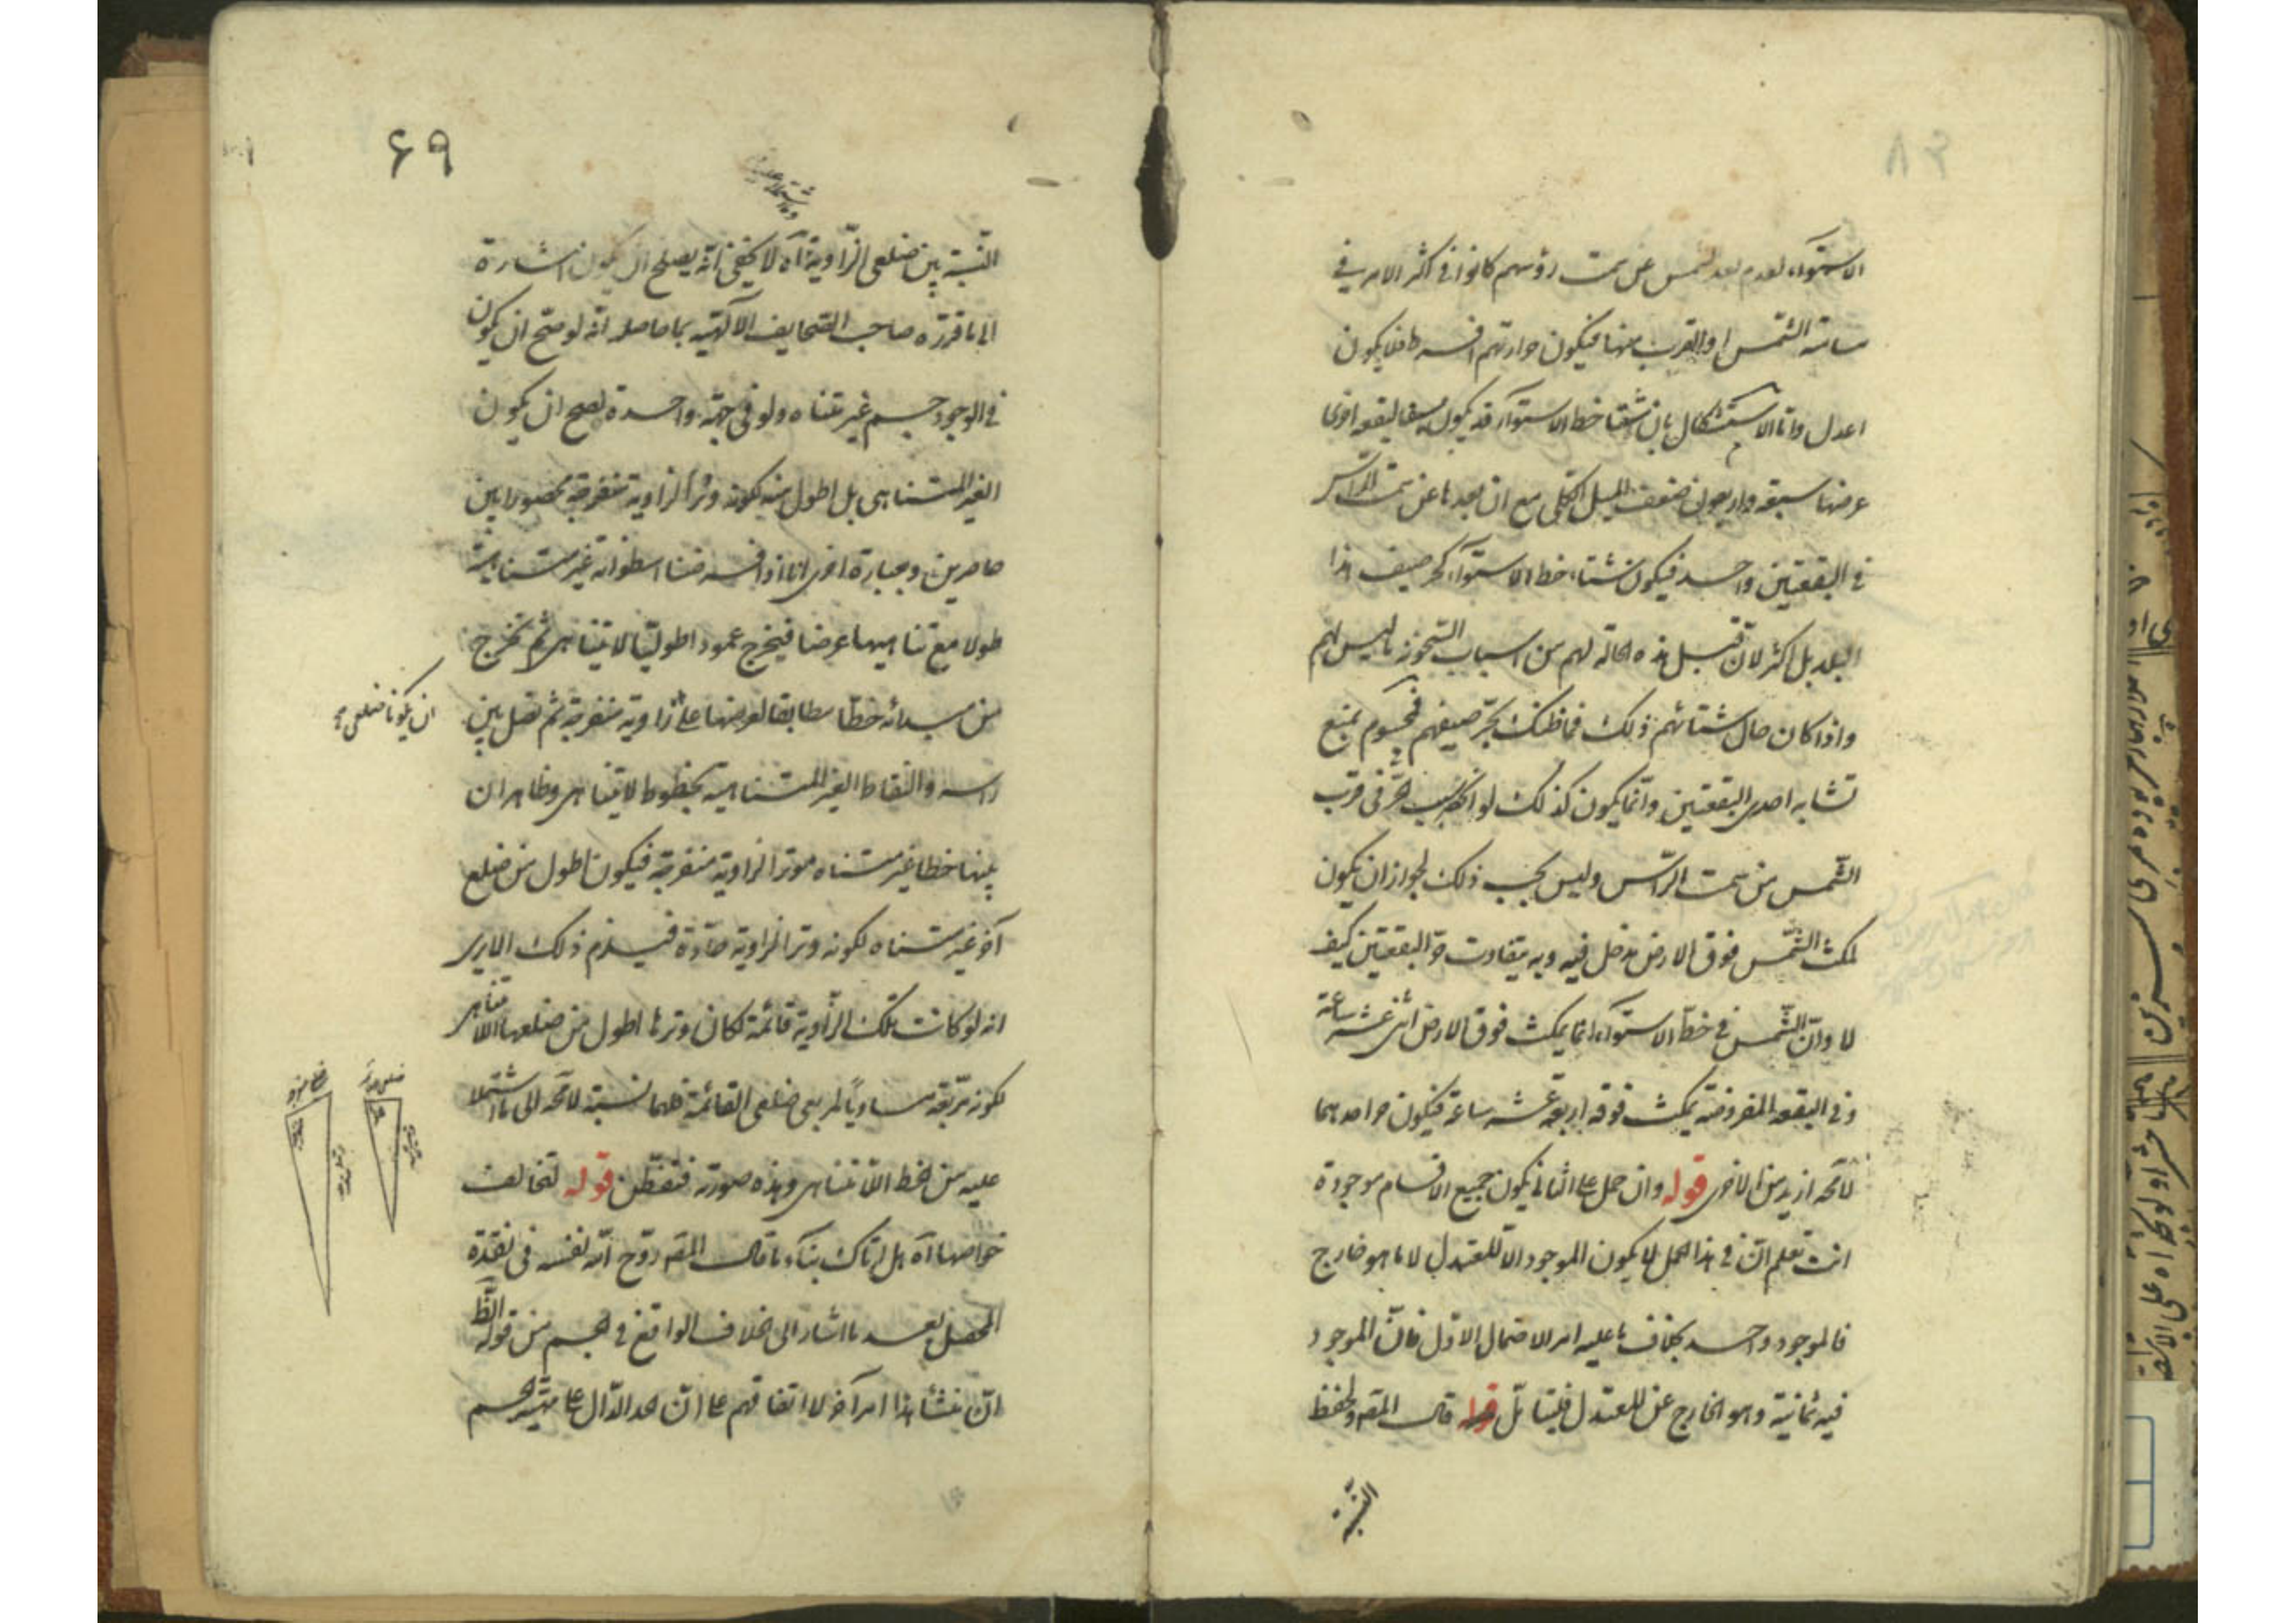 الاستوآء لعدم بعد الشمس عن سمت رؤسهم كانوا في اكثر الامر في
مسامتة الشمس او القرب منها فيكون حرارتهم افسدها فلا يكون
اعدل واما الاستشكال بان شتاء خط الاستوآء قد يكون صيفا لبقعة اخرى
عرضها سبعة واربعون ضعف الميل الكلى مع ان بعدها عن سمت الرأس
في البقعتين واحد فيكون شتاء خط الاستوآء كحر صيف هذا
البلد بل اكثر لان قبل هذه الحالة لهم من اسباب التسخن ما ليس لهم
واذا كان حال شتائهم ذلك فما ظنك بحر صيفهم فمحسوم بمنع
تشابه احدى البقعتين وانما يكون كذلك لو انحصر سبب الحر في قرب
الشمس من سمت الرأس وليس يجب ذلك لجواز ان يكون
لمكث الشمس فوق الارض مدخل فيه وبه يتفاوت حر البقعتين كيف
لا وان الشمس في خط الاستوآء انما يمكث فوق الارض اثنى عشر ساعة
وفي البقعة المفروضة يمكث فوقه اربعة عشر ساعة فيكون حر احدهما
لا محة ازيد من الاخرى قوله وان حمل على الثاني يكون جميع الاقسام موجودة
انت تعلم ان في هذا الحمل لا يكون الموجود الا للمعتدل لا ما هو خارج
فالموجود واحد بخلاف ما عليه امر الاحتمال الاول فان الموجود
فيه ثمانية وهو الخارج عن المعتدل فليتأمل قوله قال المقم ولحفظ
النسبة
٤٩
النسبة بين ضلعى الزاوية آه لا يخفى انه يصلح ان يكون اشارة
الى ما قرره صاحب الصحايف الآلهية بما حاصله انه لو صح ان يكون
في الوجود جسم غير متناه ولو في جهة واحدة لصح ان يكون
الغير المتناهى بل اطول منه لكونه وترا لزاوية منفرجة محصورا بين
حاصرين وبعبارة اخرى انا اذا فرضنا اسطوانة غير متناهية
طولا مع تناهيها عرضا فيخرج عمودا طوليا لا يتناهى ثم نخرج
من مبدائه خطا مطابقا لعرضها على زاوية منفرجة ثم نصل بين
ان يكونا ضلعى
رأسه والنقاط الغير المتناهية بخطوط لا يتناهى وظاهر ان
بينها خطا غير متناه موترا لزاوية منفرجة فيكون اطول من ضلع
آخر غير متناه لكونه وترا لزاوية حادة فيلزم ذلك
انه لو كانت تلك الزاوية قائمة لكان وترها اطول من ضلعها اللا متناهى
لكونه مربعه مساويا لمربعى ضلعى القائمة فلهما نسبة لا محة الى ما اشتملا
عليه من الخط اللا متناهى وهذه صورته فتفطن قوله لتخالف
خواصها آه هل اتاك بناء ما قال المقم روح انه نفسه في نقده
المحصل بعد ما اشار الى الخلاف الواقع في الجسم من قوله الظ
ان منشأ هذا امر آخر لا اتفاقهم على ان الحد الدال على مهية الجسم